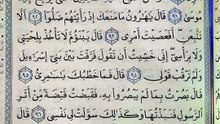 موسى ۝٩١ قال يهرون ما منعك إذ رأيتهم ضلوا ۝٩٢ ألا
تتبعن أفعصيت أمرى ۝٩٣ قال يبنؤم لا تأخذ بلحيتى
ولا برأسى إنى خشيت أن تقول فرقت بين بنى إسرءيل
ولم ترقب قولى ۝٩٤ قال فما خطبك يسمرى ۝٩٥
قال بصرت بما لم يبصروا به فقبضت قبضة من أثر
الرسول فنبذتها وكذلك سولت لى نفسى ۝٩٦